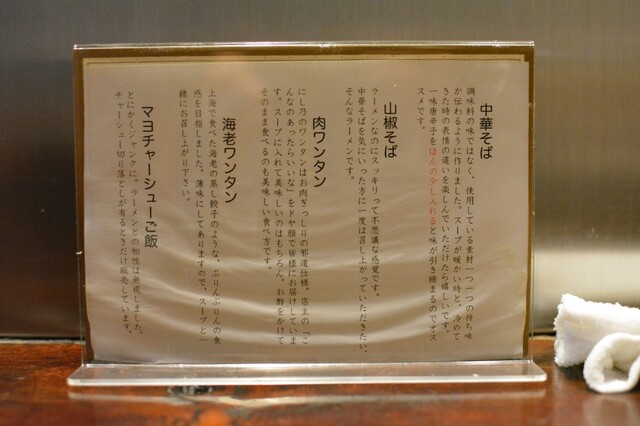 中華そば
調味料の味ではなく、使用している素材一つ一つの持ち味
が伝わるように作りました。スープが暖かい時と、冷めて
きた時の表情の違いを楽しんでいただけたら嬉しいです。
一味唐辛子をほんの少し入れると味が引き締まるのでオス
スメです。
山椒そば
ラーメンなのにスッキリって不思議な感覚です。
中華そばを気にいった方に一度は召し上がっていただきたい、
そんなラーメンです。
肉ワンタン
にし乃のワンタンはお肉ぎっしりの邪道仕様。店主の「こ
んなのあったらいいな」をドヤ顔で皆様にお届けしていま
す。スープに入れて美味しいのはもちろん。お酢をかけて
そのまま食べるのも美味しい食べ方です。
海老ワンタン
上海で食べた海老の蒸し餃子のような、ぷりんぷりんの食
感を目指しました。薄味にしてありますので、スープと一
緒にお召し上がり下さい。
マヨチャーシューご飯
とにかくジャンクに。ラーメンとの相性は無視しました。
チャーシュー切り落としが有るときだけ販売しています。